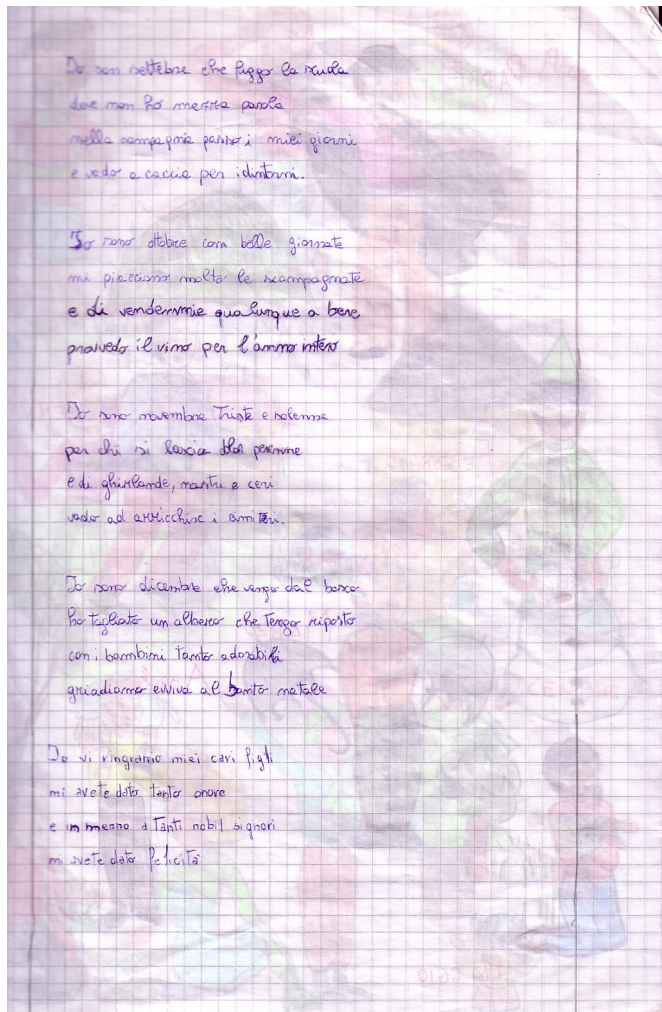 Io son settebre che fuggo la scuola
dove non ho mezza parola
nella campagnia passo i miei giorni
e vado a caccia per i dintorni.
Io sono ottobre con belle giornate
mi piacciono molto le scampagnate
e di vendemmie qualunque a bere
provvedo il vino per l'anno intero
Io sono novembre triste e solenne
per chi si lascia perenne
e di ghirlande, nastri e ceri
vado ad arricchire i cimiteri.
Io sono dicembre che vengo dal bosco
ho tagliato un albero che tengo riposto
con i bambini tanto adorabili
gridiamo evviva al santo natale
Io vi ringrazio miei cari figli
mi avete dato tanto onore
e in mezzo a tanti nobil signori
mi avete dato felicità